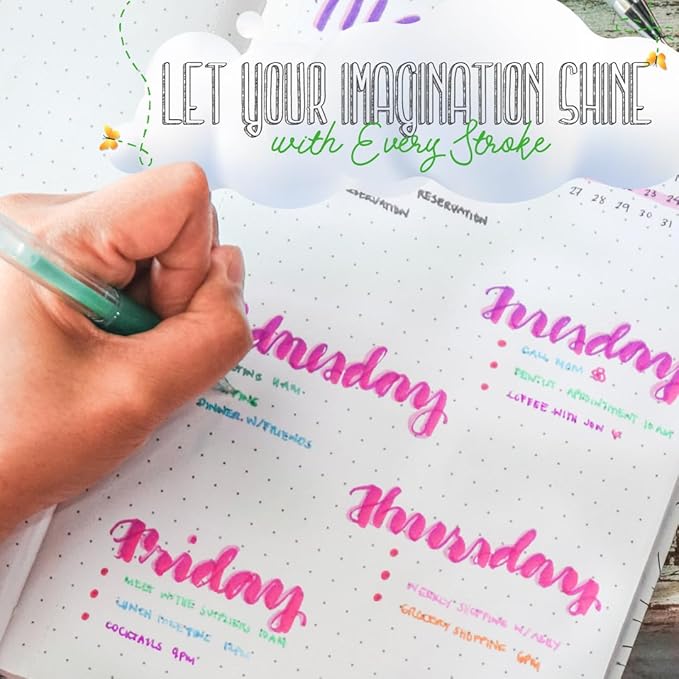 LET YOUR IMAGINATION SHINE
with Every Stroke
RESERVATION
27 28 29 30
31
Tuesday
CALL MOM
DENTIST APPOINTMENT 10AM
COFFEE WITH JON
Wednesday
11AM
DINNER W/FRIENDS
Thursday
WEEKLY SHOPPING W/ABBY
GROCERY SHOPPING 6PM
Friday
MEET W/THE SUPPLIERS 10AM
LUNCH MEETING 12PM
COCKTAILS 9PM